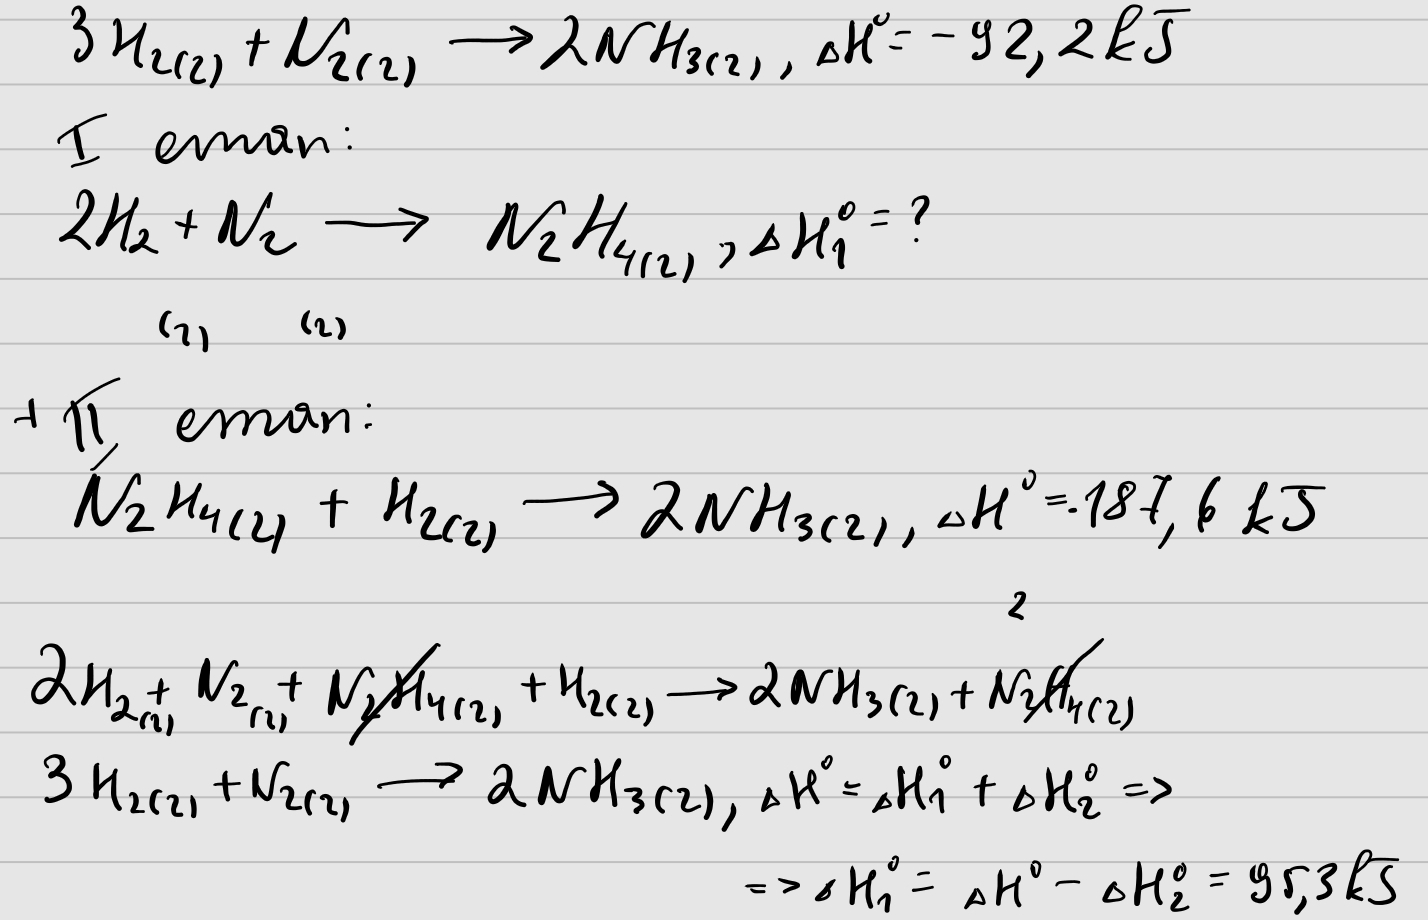 3H₂(г) + N₂(г) → 2NH₃(г), ΔH⁰ = -92,2 kJ
I етап:
2H₂ + N₂ → N₂H₄(г), ΔH₁⁰ = ?
(г) (г)
+ II етап:
N₂H₄(г) + H₂(г) → 2NH₃(г), ΔH⁰ = -187,6 kJ
2
2H₂(г) + N₂(г) + N₂H₄(г) + H₂(г) → 2NH₃(г) + N₂H₄(г)
3H₂(г) + N₂(г) → 2NH₃(г), ΔH⁰ = ΔH₁⁰ + ΔH₂⁰ =>
=> ΔH₁⁰ = ΔH⁰ - ΔH₂⁰ = 95,3 kJ